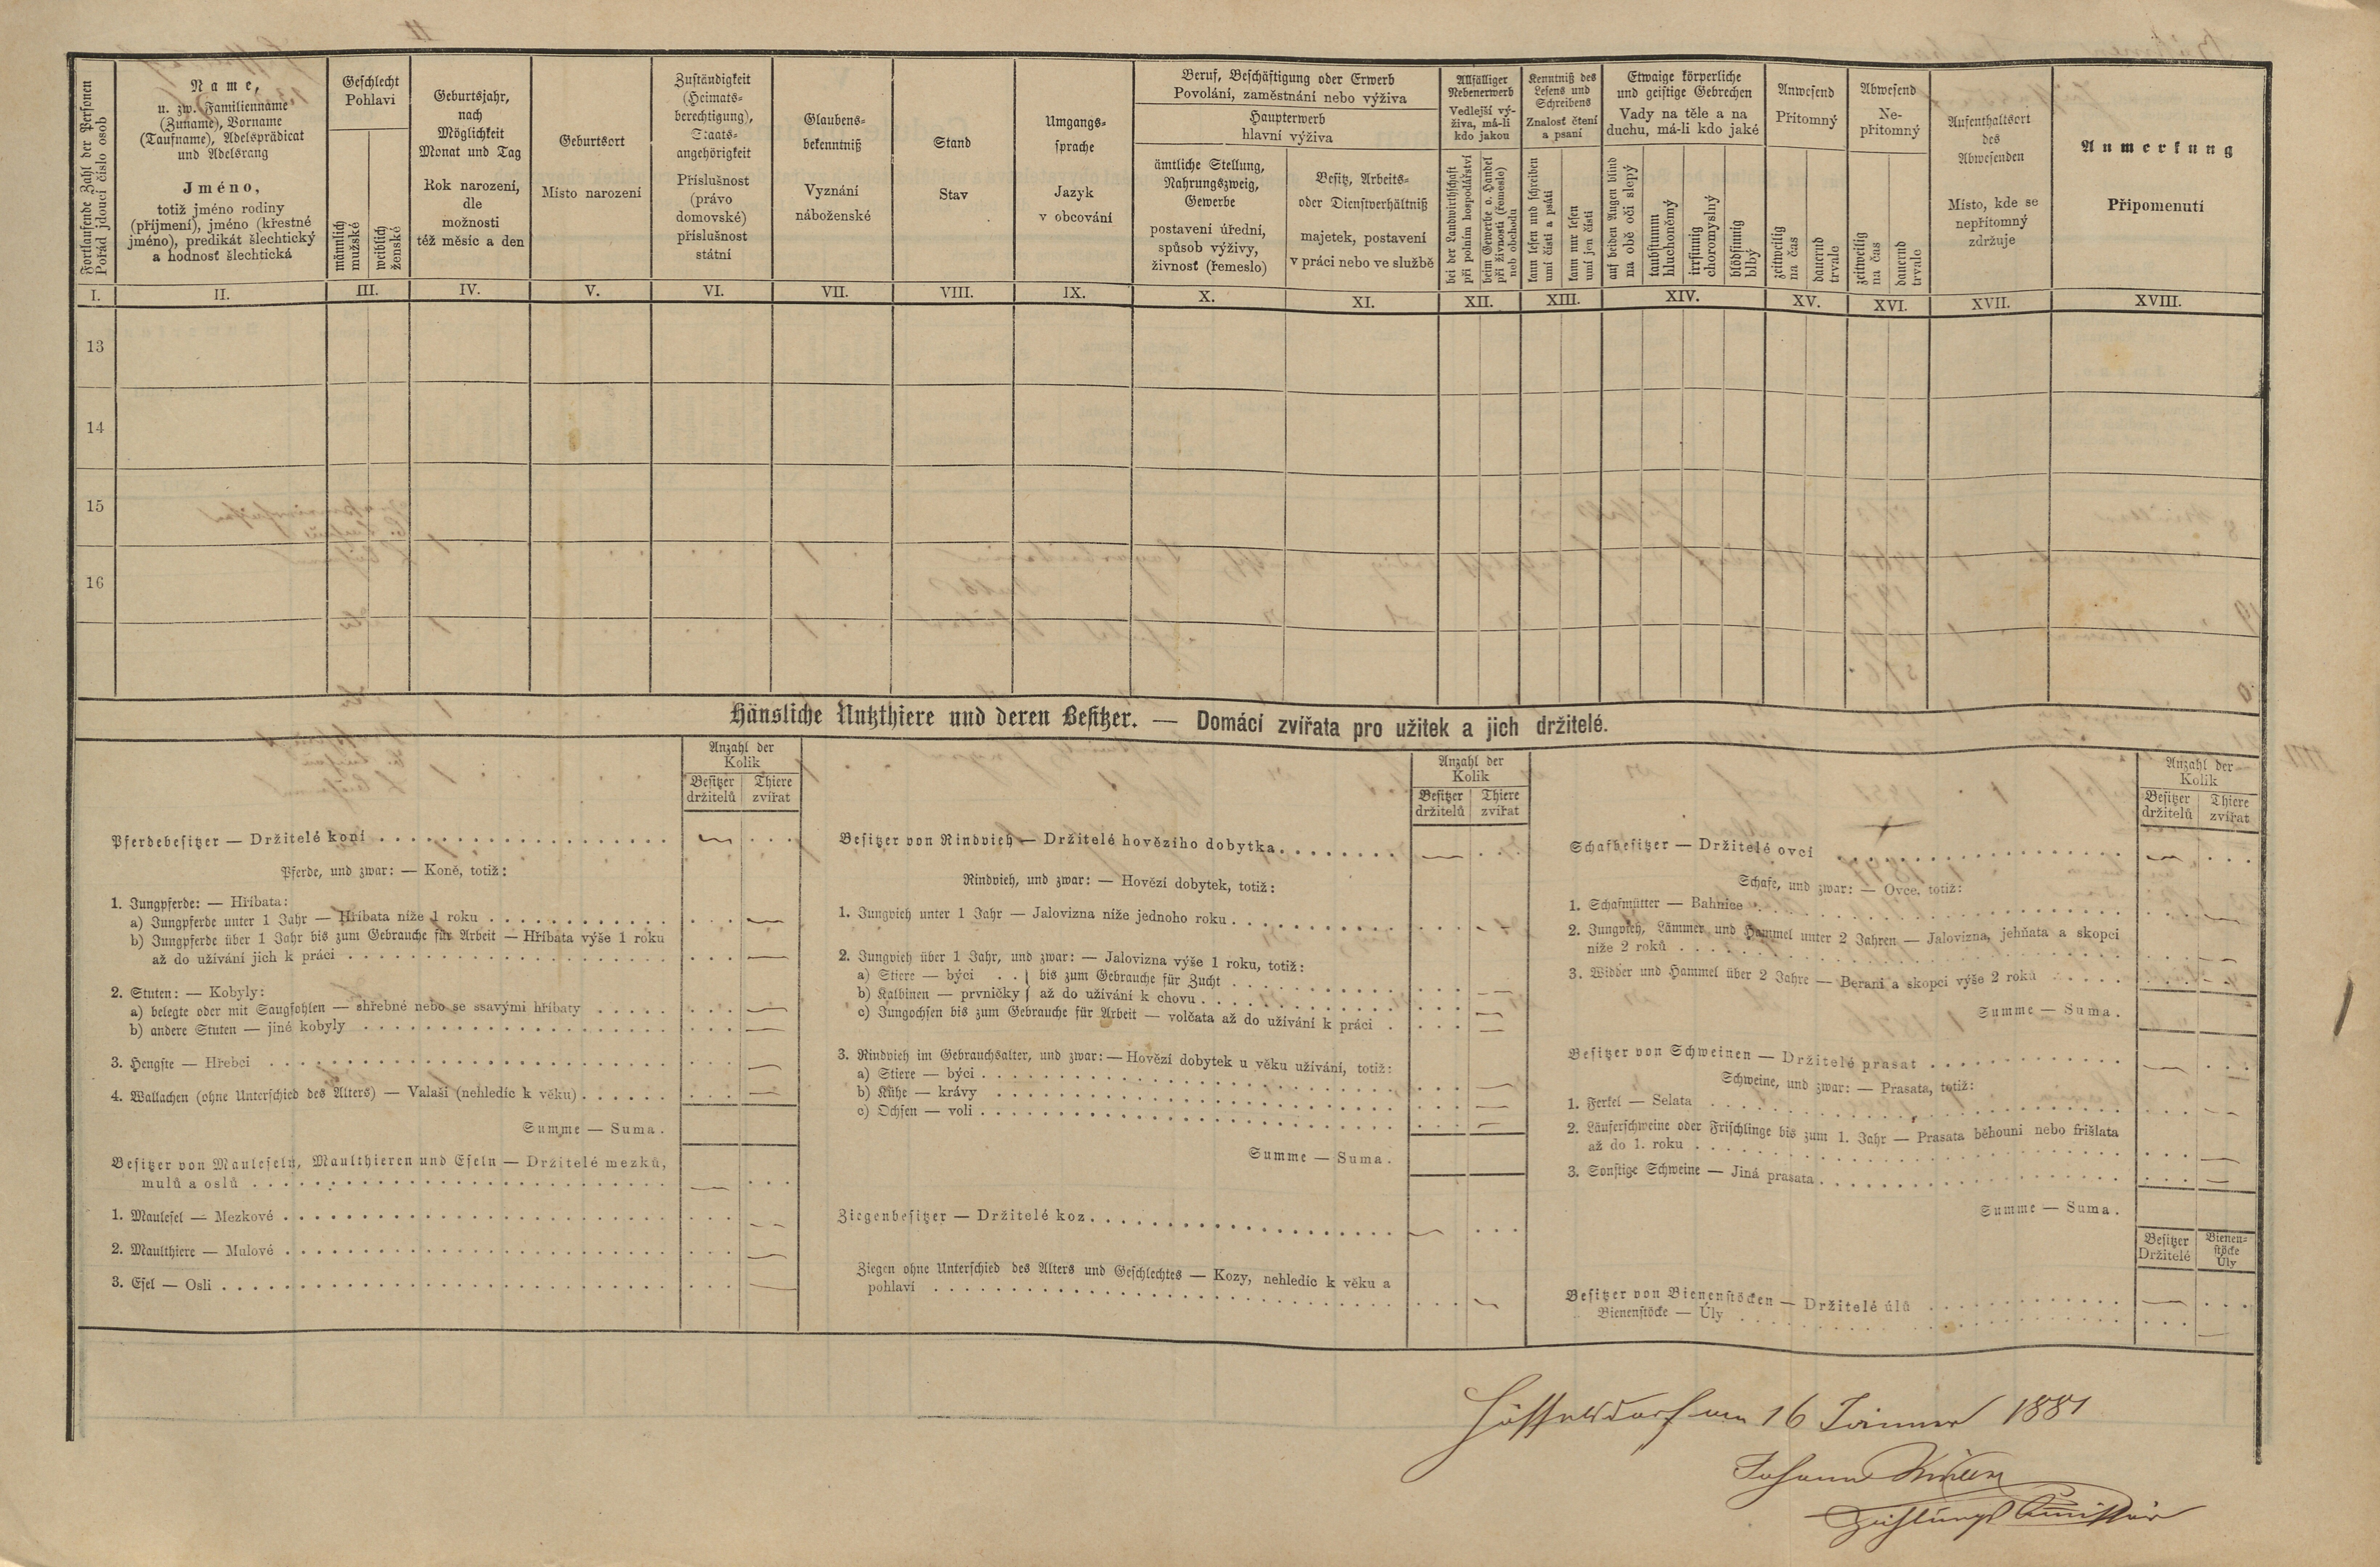 Fortlaufende Zahl der Personen
Pořád jdoucí číslo osob
Name,
u. zw. Familienname
(Zuname), Vorname
(Taufname), Adelsprädicat
und Adelsrang
Jméno,
totiž jméno rodiny
(příjmení), jméno (křestné
jméno), predikát šlechtický
a hodnosť šlechtická
Geschlecht
Pohlaví
männlich
mužské
weiblich
ženské
Geburtsjahr,
nach
Möglichkeit
Monat und Tag
Rok narození,
dle
možnosti
též měsíc a den
Geburtsort
Místo narození
Zuständigkeit
(Heimats-
berechtigung),
Staats-
angehörigkeit
Příslušnost
(právo
domovské)
příslušnost
státní
Glaubens-
bekenntniß
Vyznání
náboženské
Stand
Stav
Umgangs-
sprache
Jazyk
v obcování
Beruf, Beschäftigung oder Erwerb
Povolání, zaměstnání nebo výživa
Haupterwerb
hlavní výživa
ämtliche Stellung,
Nahrungszweig,
Gewerbe
postavení úřední,
spůsob výživy,
živnosť (řemeslo)
Besitz, Arbeits-
oder Dienstverhältniß
majetek, postavení
v práci nebo ve službě
Allfälliger
Nebenerwerb
Vedlejší vý-
živa, má-li
kdo jakou
bei der Landwirthschaft
při polním hospodářství
beim Gewerbe o. Handel
při živnosti (řemeslo)
neb obchodu
Kenntniß des
Lesens und
Schreibens
Znalosť čtení
a psaní
kann lesen und schreiben
umí čísti a psáti
kann nur lesen
umí jen čísti
Etwaige körperliche
und geistige Gebrechen
Vady na těle a na
duchu, má-li kdo jaké
auf beiden Augen blind
na obě oči slepý
taubstumm
hluchoněmý
irrsinnig
choromyslný
blödsinnig
blbý
Anwesend
Přítomný
zeitweilig
na čas
dauernd
trvale
Abwesend
Ne-
přítomný
zeitweilig
na čas
dauernd
trvale
Aufenthaltsort
des
Abwesenden
Místo, kde se
nepřítomný
zdržuje
Anmerkung
Připomenutí
I. II. III. IV. V. VI. VII. VIII. IX. X. XI. XII. XIII. XIV. XV. XVI. XVII. XVIII.
13
14
15
16
Häusliche Nutzthiere und deren Besitzer. — Domácí zvířata pro užitek a jich držitelé.
Anzahl der
Kolik
Besitzer
držitelů
Thiere
zvířat
Pferdebesitzer — Držitelé koní
Pferde, und zwar: — Koně, totiž:
1. Jungpferde: — Hříbata:
a) Jungpferde unter 1 Jahr — Hříbata níže 1 roku
b) Jungpferde über 1 Jahr bis zum Gebrauche für Arbeit — Hříbata výše 1 roku
až do užívání jich k práci
2. Stuten: — Kobyly:
a) belegte oder mit Saugfohlen — shřebné nebo se ssavými hříbaty
b) andere Stuten — jiné kobyly
3. Hengste — Hřebci
4. Wallachen (ohne Unterschied des Alters) — Valaši (nehledíc k věku)
Summe — Suma.
Besitzer von Mauleseln, Maulthieren und Eseln — Držitelé mezků,
mulů a oslů
1. Maulesel — Mezkové
2. Maulthiere — Mulové
3. Esel — Osli
Anzahl der
Kolik
Besitzer
držitelů
Thiere
zvířat
Besitzer von Rindvieh — Držitelé hovězího dobytka
Rindvieh, und zwar: — Hovězí dobytek, totiž:
1. Jungvieh unter 1 Jahr — Jalovizna níže jednoho roku
2. Jungvieh über 1 Jahr, und zwar: — Jalovizna výše 1 roku, totiž:
a) Stiere — býci . . } bis zum Gebrauche für Zucht
b) Kalbinen — prvničky } až do užívání k chovu
c) Jungochsen bis zum Gebrauche für Arbeit — volčata až do užívání k práci
3. Rindvieh im Gebrauchsalter, und zwar: — Hovězí dobytek u věku užívání, totiž:
a) Stiere — býci
b) Kühe — krávy
c) Ochsen — voli
Summe — Suma.
Ziegenbesitzer — Držitelé koz
Ziegen ohne Unterschied des Alters und Geschlechtes — Kozy, nehledíc k věku a
pohlaví
Anzahl der
Kolik
Besitzer
držitelů
Thiere
zvířat
Schafbesitzer — Držitelé ovcí
Schafe, und zwar: — Ovce, totiž:
1. Schafmütter — Bahnice
2. Jungvieh, Lämmer und Hammel unter 2 Jahren — Jalovizna, jehňata a skopci
níže 2 roků
3. Widder und Hammel über 2 Jahre — Berani a skopci výše 2 roků
Summe — Suma.
Besitzer von Schweinen — Držitelé prasat
Schweine, und zwar: — Prasata, totiž:
1. Ferkel — Selata
2. Läuferschweine oder Frischlinge bis zum 1. Jahr — Prasata běhouni nebo frišlata
až do 1. roku
3. Sonstige Schweine — Jiná prasata
Summe — Suma.
Besitzer
Držitelé
Bienen-
stöcke
Úly
Besitzer von Bienenstöcken — Držitelé úlů
Bienenstöcke — Úly
am 16 Jänner 1881
Johann